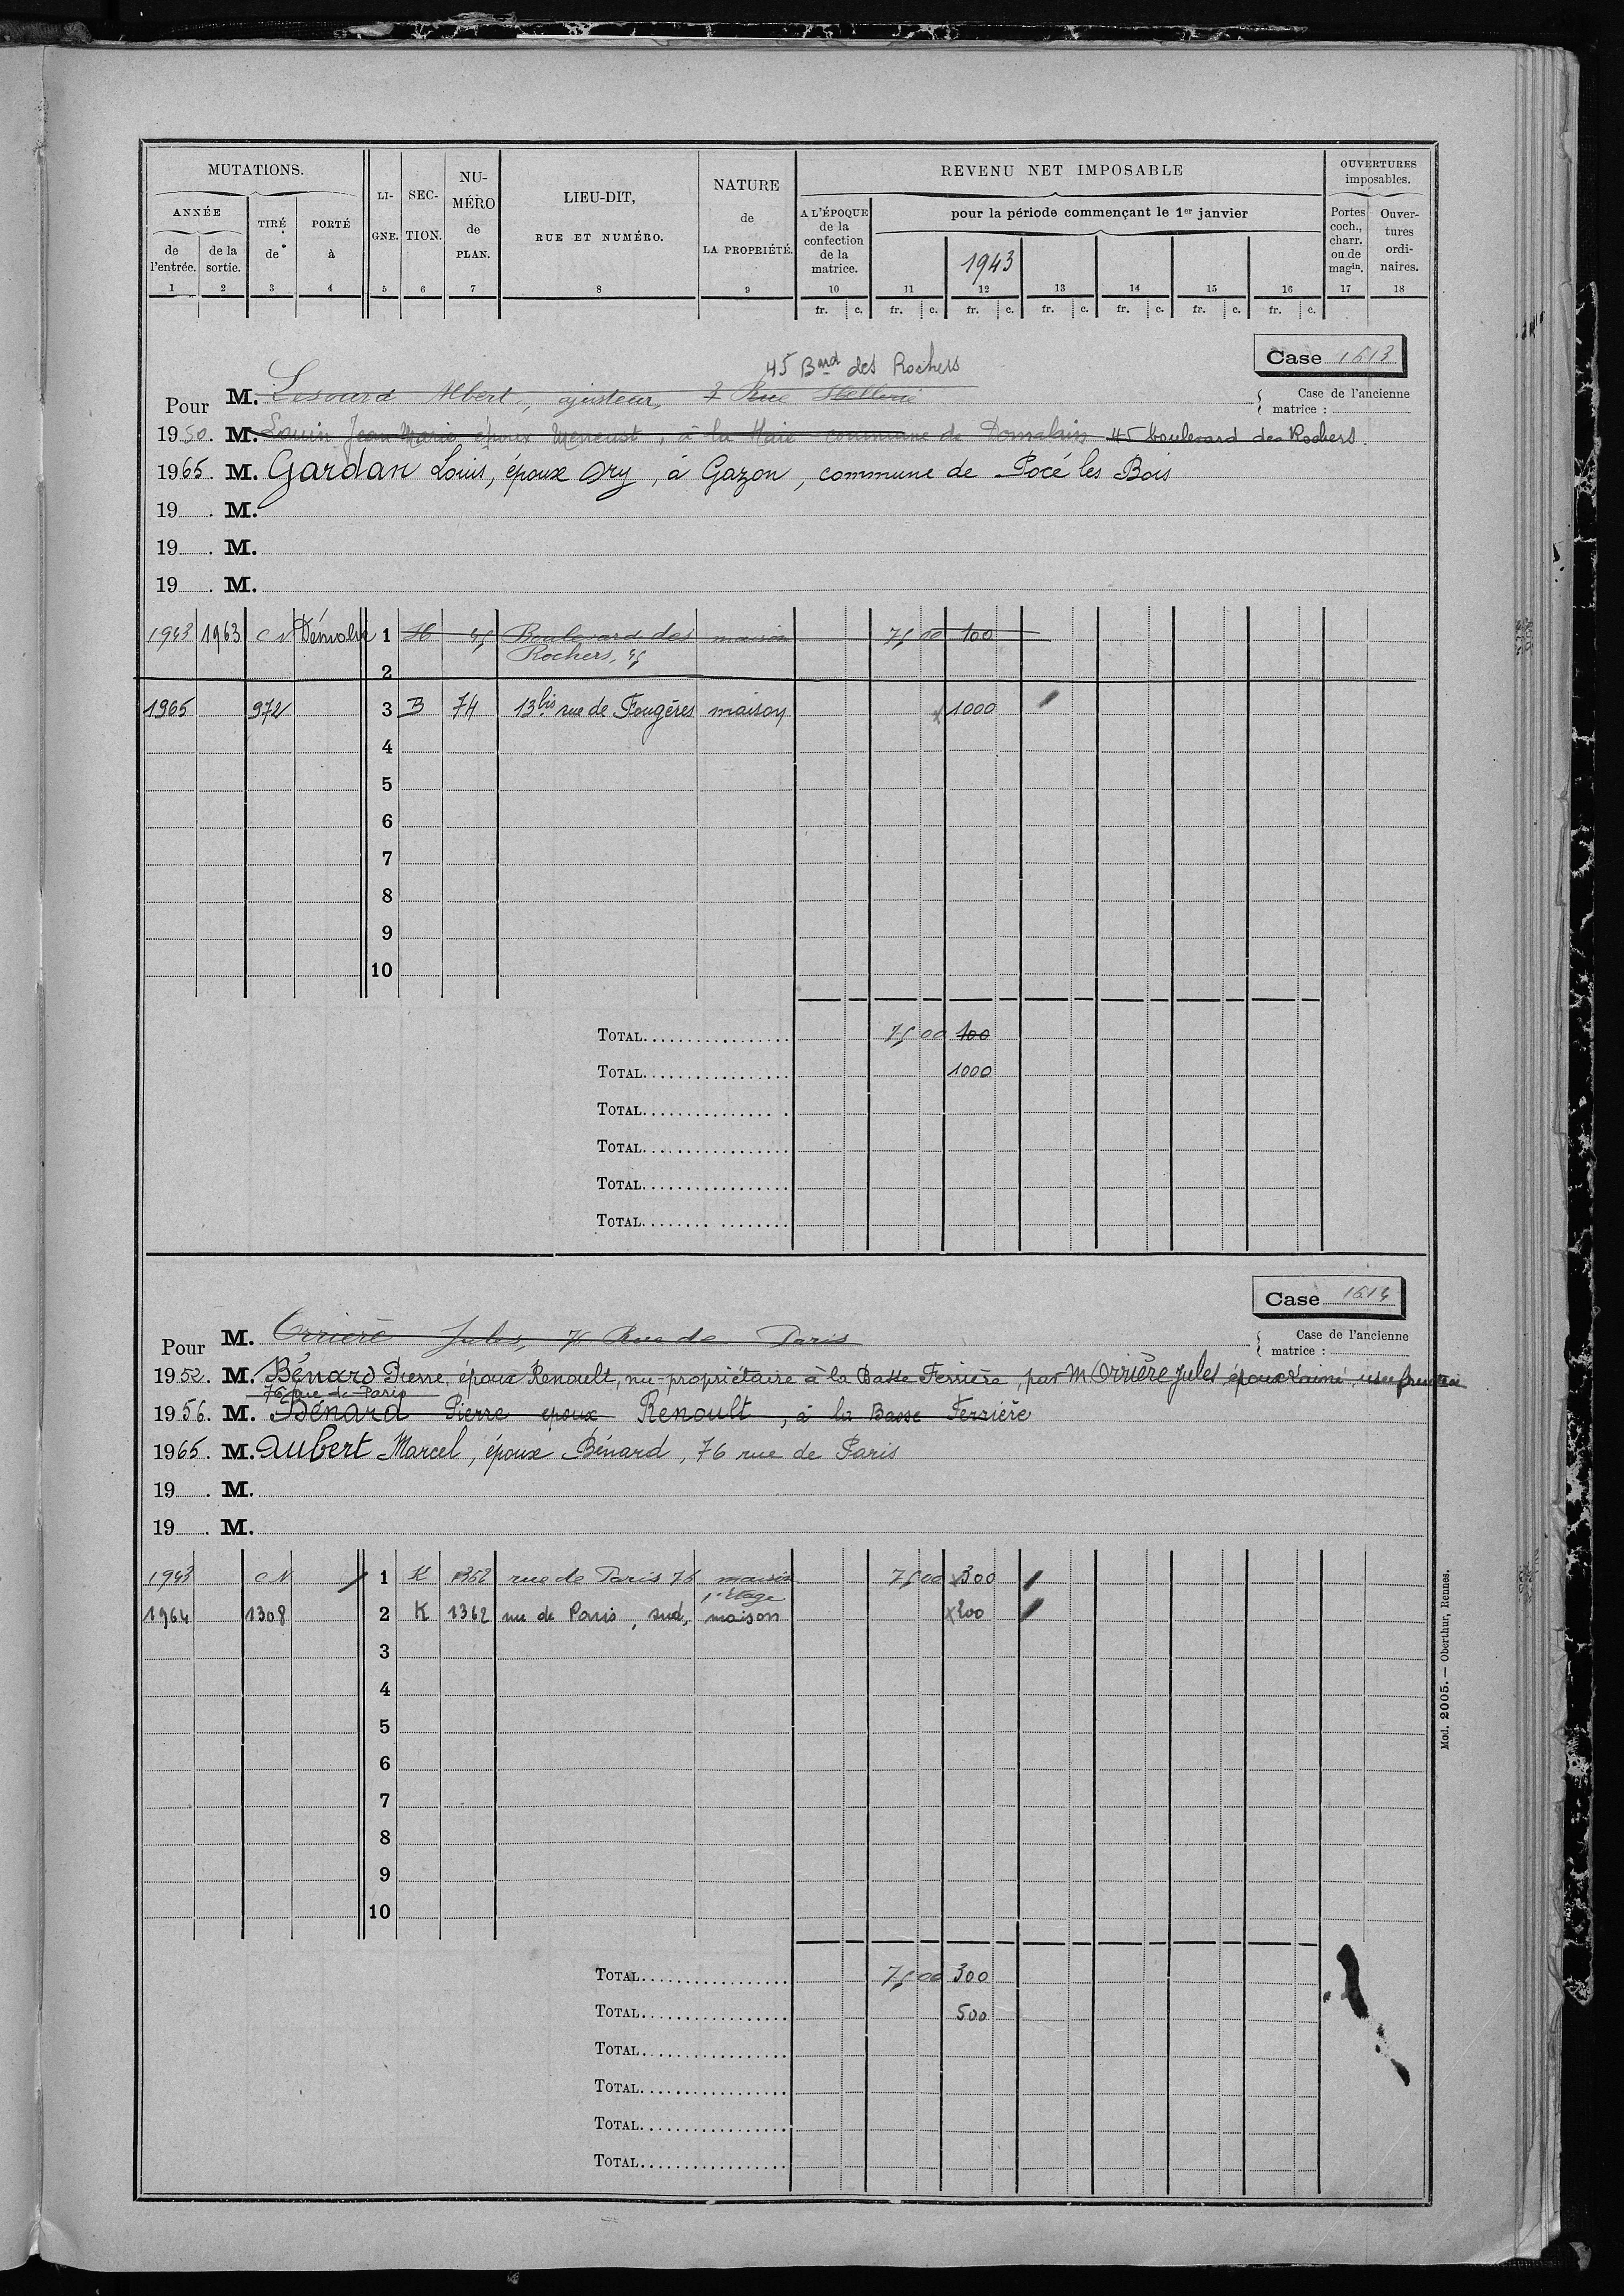 MUTATIONS.
ANNÉE
de l'entrée.
de la sortie.
TIRÉ de
PORTÉ à
LIGNE.
SECTION.
NUMÉRO de PLAN.
LIEU-DIT, RUE ET NUMÉRO.
NATURE de LA PROPRIÉTÉ.
REVENU NET IMPOSABLE
A L'ÉPOQUE de la confection de la matrice.
pour la période commençant le 1er janvier
1943
OUVERTURES imposables.
Portes coch., charr. ou de magin.
Ouvertures ordinaires.
1 2 3 4 5 6 7 8 9 10 11 12 13 14 15 16 17 18
fr. c. fr. c. fr. c. fr. c. fr. c. fr. c. fr. c.
Case 1613
45 Bard des Rochers
Pour M. Albert, ajusteur, 7 Rue
Case de l'ancienne matrice :
1950. M. Louin Jean Marie époux Meneust, à la Haie commune de Domalain 45 boulevard des Rochers.
1965. M. Gardan Louis, époux Ory, à Gazon, commune de Pocé les Bois
19 . M.
19 . M.
19 . M.
1943 1963 CN Démolie 1 H 45 Boulevard des maison 75 00 100
2 Rochers, 45
1965 972 3 B 74 13bis rue de Fougères maison x 1000
4
5
6
7
8
9
10
TOTAL 75 00 100
TOTAL 1000
TOTAL
TOTAL
TOTAL
TOTAL
Case 1614
Pour M. Orrière Jules, 76 Rue de Paris
Case de l'ancienne matrice :
1952. M. Bénard Pierre, époux Renoult, nu-propriétaire à la Basse Ferrière, par M Orrière Jules époux Lainé, usufruitier
76 rue de Paris
1956. M. Bénard Pierre époux Renoult, à la Basse Ferrière
1965. M. Aubert Marcel, époux Bénard, 76 rue de Paris
19 . M.
19 . M.
1943 CN 1 K 1362 rue de Paris 76 maison 75 00 x300
1er étage
1964 1308 2 K 1362 rue de Paris, sud, maison x200
3
4
5
6
7
8
9
10
TOTAL 75 00 300
TOTAL 500
TOTAL
TOTAL
TOTAL
TOTAL
Mod. 2005. — Oberthur, Rennes.